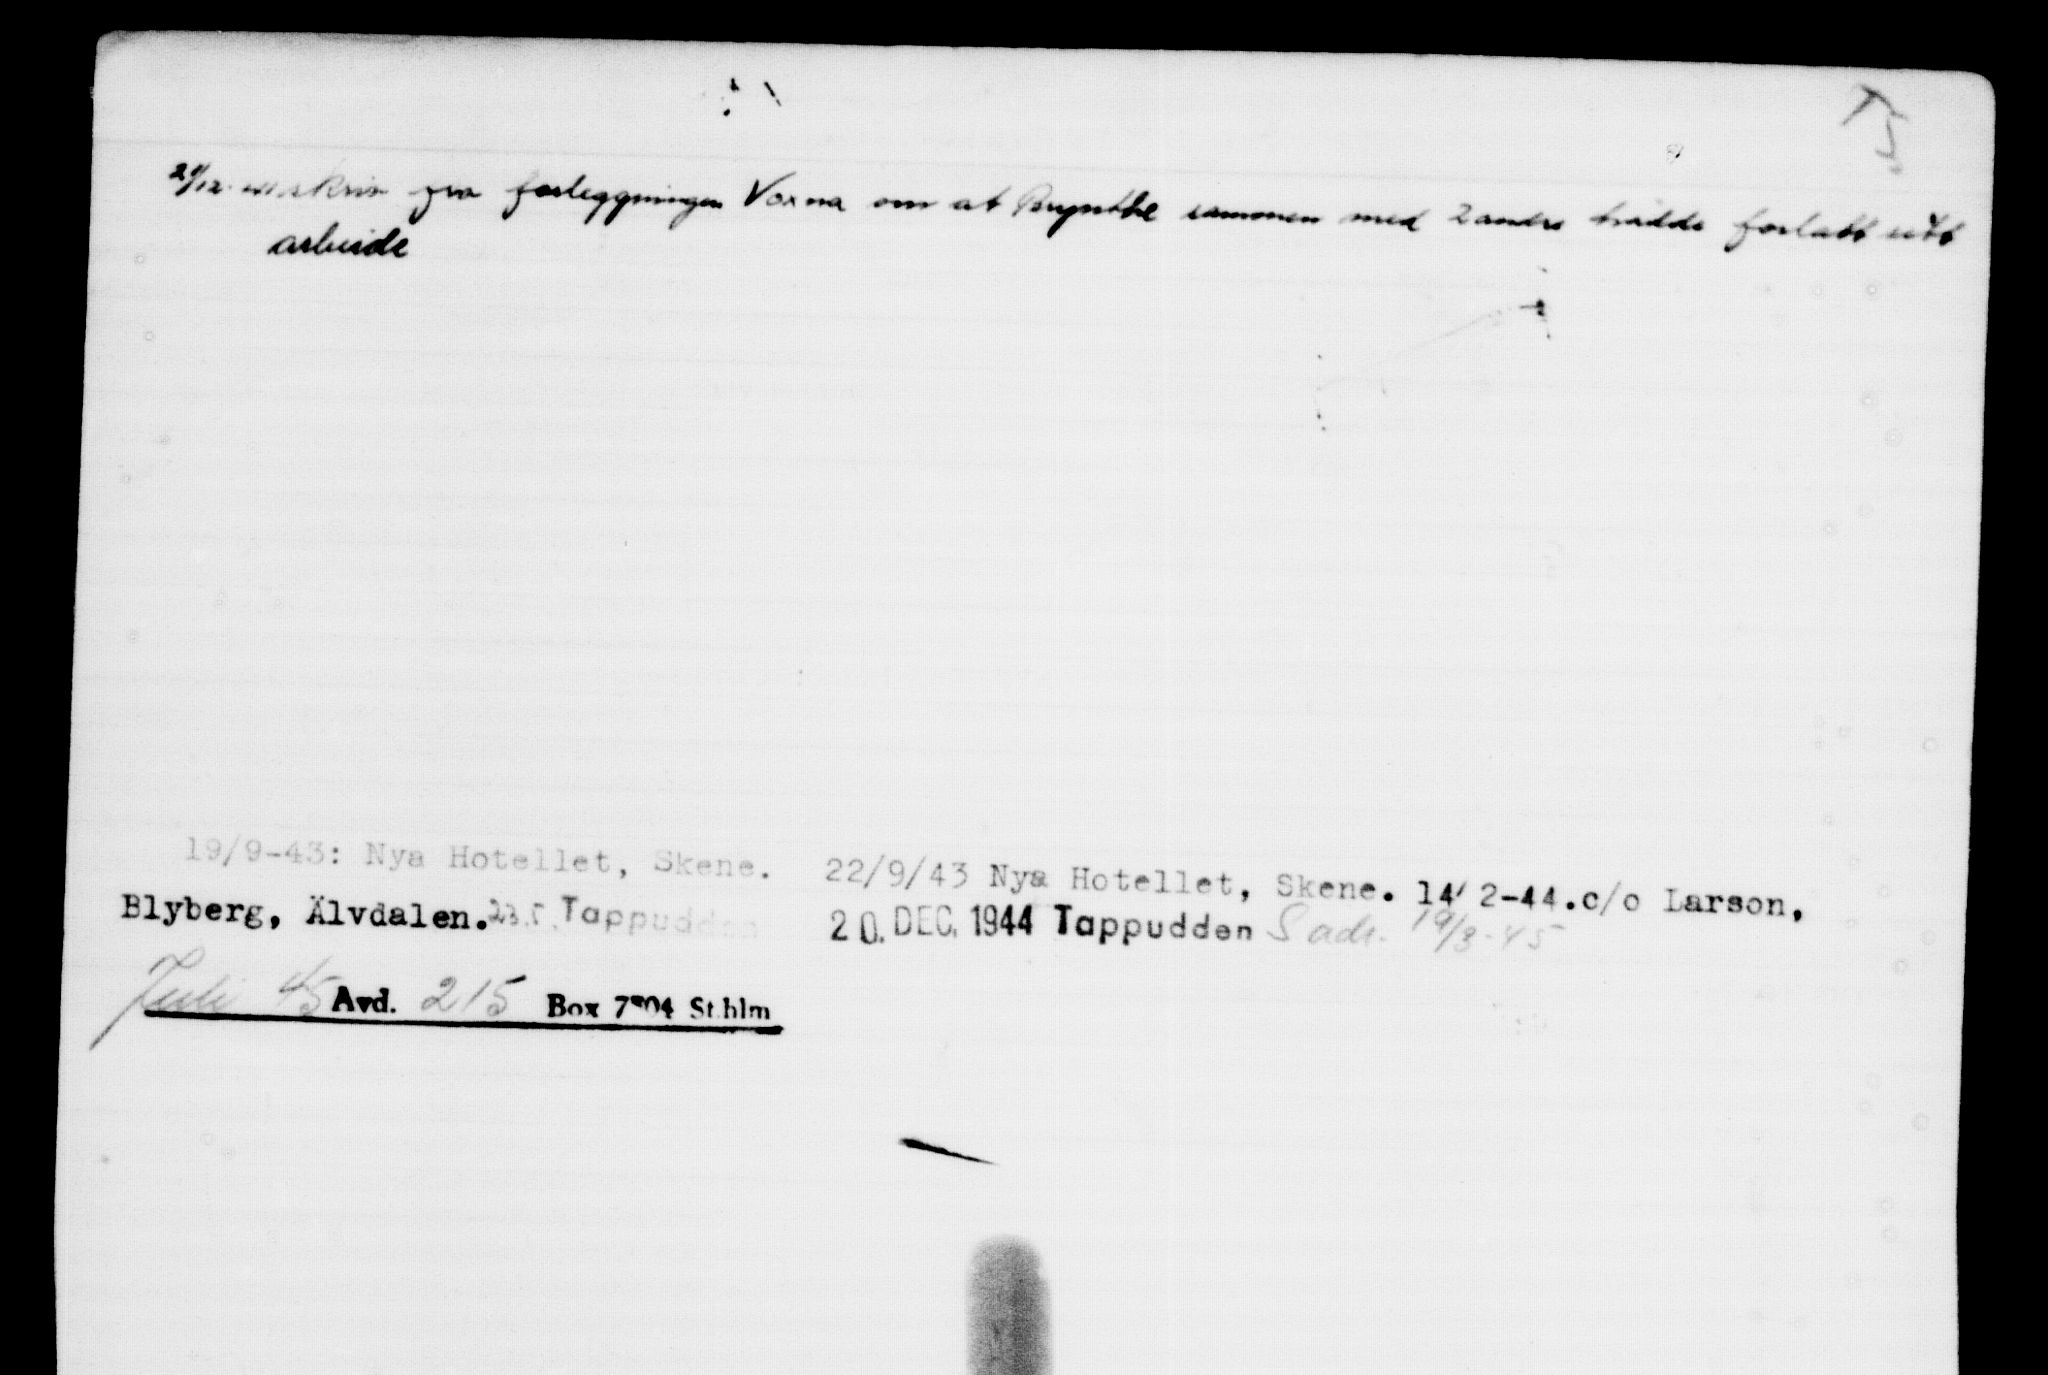 skriv fra forleggningen Voxna om at Brynthe sammen med 2 andre hadde forlatt sitt
arbeide
19/9-43: Nya Hotellet, Skene. 22/9/43 Nya Hotellet, Skene. 14/2-44.c/o Larson,
Blyberg, Älvdalen. Tappudden 20. DEC. 1944 Tappudden S adr. 19/3-45
Juli 45 Avd. 215 Box 7804 St.hlm